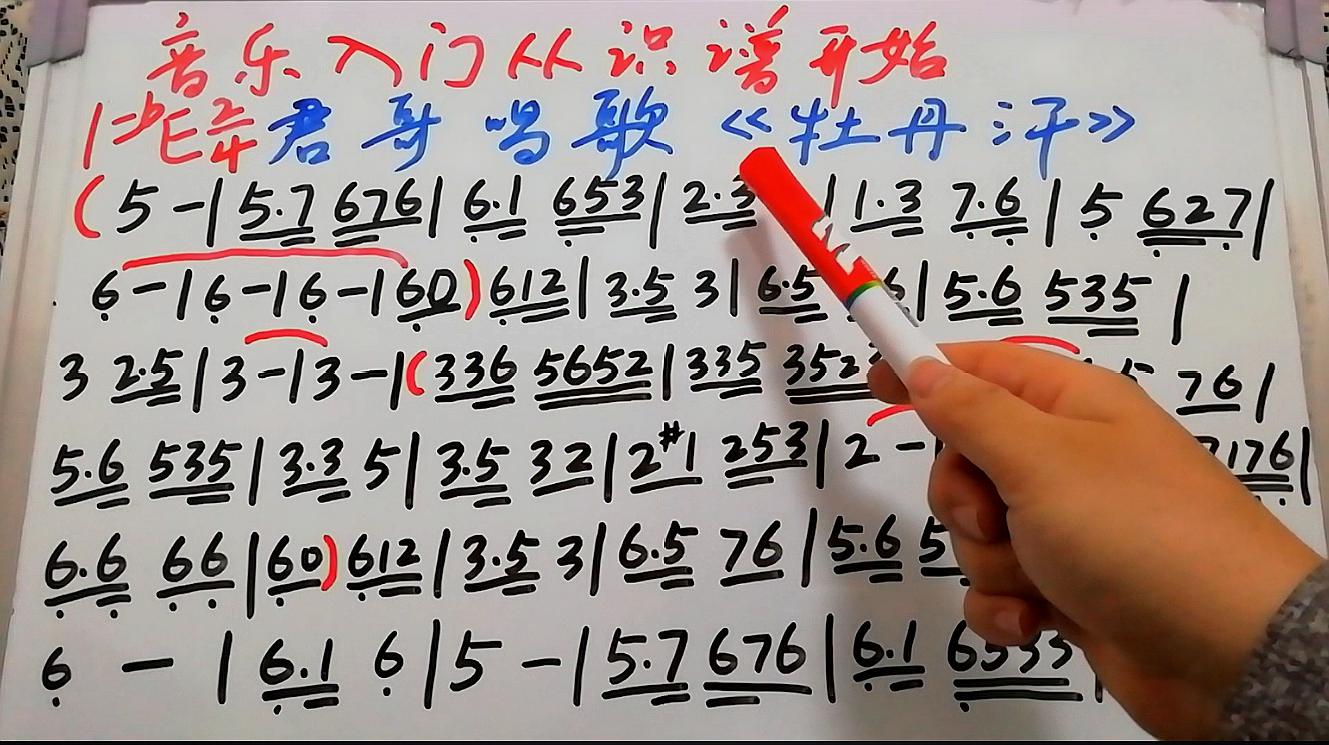 音乐入门从识谱开始
君哥唱歌《牡丹汗》
(5-|5.7 676|6.1 653|2.3 |1.3 7.6|5 627|
6-|6-|6-|60)612|3.5 3|6.5 6|5.6 535|
3 2.5|3-|3-|(336 5652|335 352 5 76|
5.6 535|3.3 5|3.5 32|2#1 253|2- 7176|
6.6 66|60)612|3.5 3|6.5 76|5.6 5
6-|6.1 6|5-|5.7 676|6.1 6533|